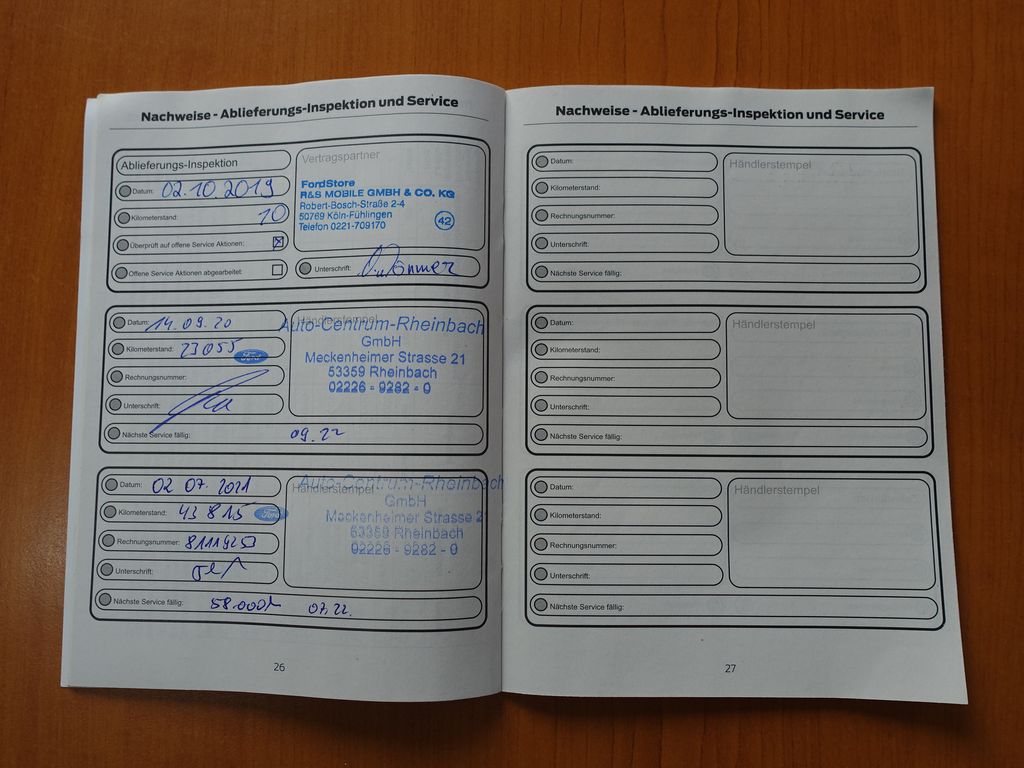 Nachweise - Ablieferungs-Inspektion und Service
Ablieferungs-Inspektion
Datum: 02.10.2019
Kilometerstand: 10
Überprüft auf offene Service Aktionen:
Offene Service Aktionen abgearbeitet:
Vertragspartner
FordStore
R&S MOBILE GMBH & CO. KG
Robert-Bosch-Straße 2-4
50769 Köln-Fühlingen
Telefon 0221-709170
42
Unterschrift:
Datum: 14.09.20
Kilometerstand: 23055
Ford
Rechnungsnummer:
Unterschrift:
Händlerstempel
Auto-Centrum-Rheinbach
GmbH
Meckenheimer Strasse 21
53359 Rheinbach
02226 - 9282 - 0
Nächste Service fällig: 09.22
Datum: 02 07. 2021
Kilometerstand: 43 815
Ford
Rechnungsnummer:
Unterschrift:
Händlerstempel
Auto-Centrum-Rheinbach
GmbH
Meckenheimer Strasse 2
53359 Rheinbach
02226 - 9282 - 0
Nächste Service fällig: 58.000 07.22.
26
Nachweise - Ablieferungs-Inspektion und Service
Datum:
Kilometerstand:
Rechnungsnummer:
Unterschrift:
Händlerstempel
Nächste Service fällig:
Datum:
Kilometerstand:
Rechnungsnummer:
Unterschrift:
Händlerstempel
Nächste Service fällig:
Datum:
Kilometerstand:
Rechnungsnummer:
Unterschrift:
Händlerstempel
Nächste Service fällig:
27